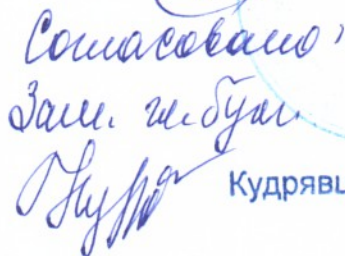 Согласовано
Зам. гл. бух.
Кудрявц